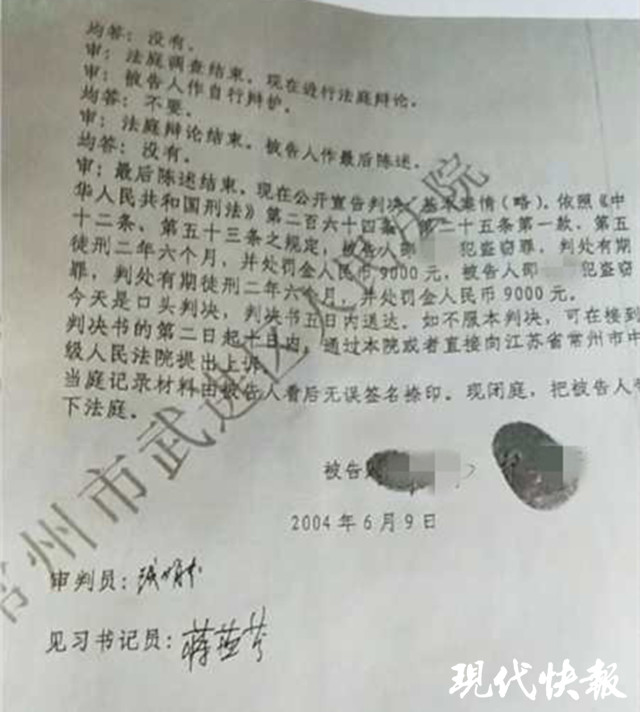 均答：没有。
审：法庭调查结束，现在进行法庭辩论。
审：被告人作自行辩护。
均答：不要。
审：法庭辩论结束，被告人作最后陈述。
均答：没有。
审：最后陈述结束，现在公开宣告判决，基本案情（略），依照《中
华人民共和国刑法》第二百六十四条、第二十五条第一款、第五
十二条、第五十三条之规定，被告人邵 犯盗窃罪，判处有期
徒刑二年六个月，并处罚金人民币9000元，被告人邵 犯盗窃
罪，判处有期徒刑二年六个月，并处罚金人民币9000元。
今天是口头判决，判决书五日内送达。如不服本判决，可在接到
判决书的第二日起十日内，通过本院或者直接向江苏省常州市中
级人民法院提出上诉。
当庭记录材料由被告人看后无误签名捺印。现闭庭，把被告人带
下法庭。
被告
2004年6月9日
审判员：
见习书记员：蒋燕芬
常州市武进区人民法院
现代快报